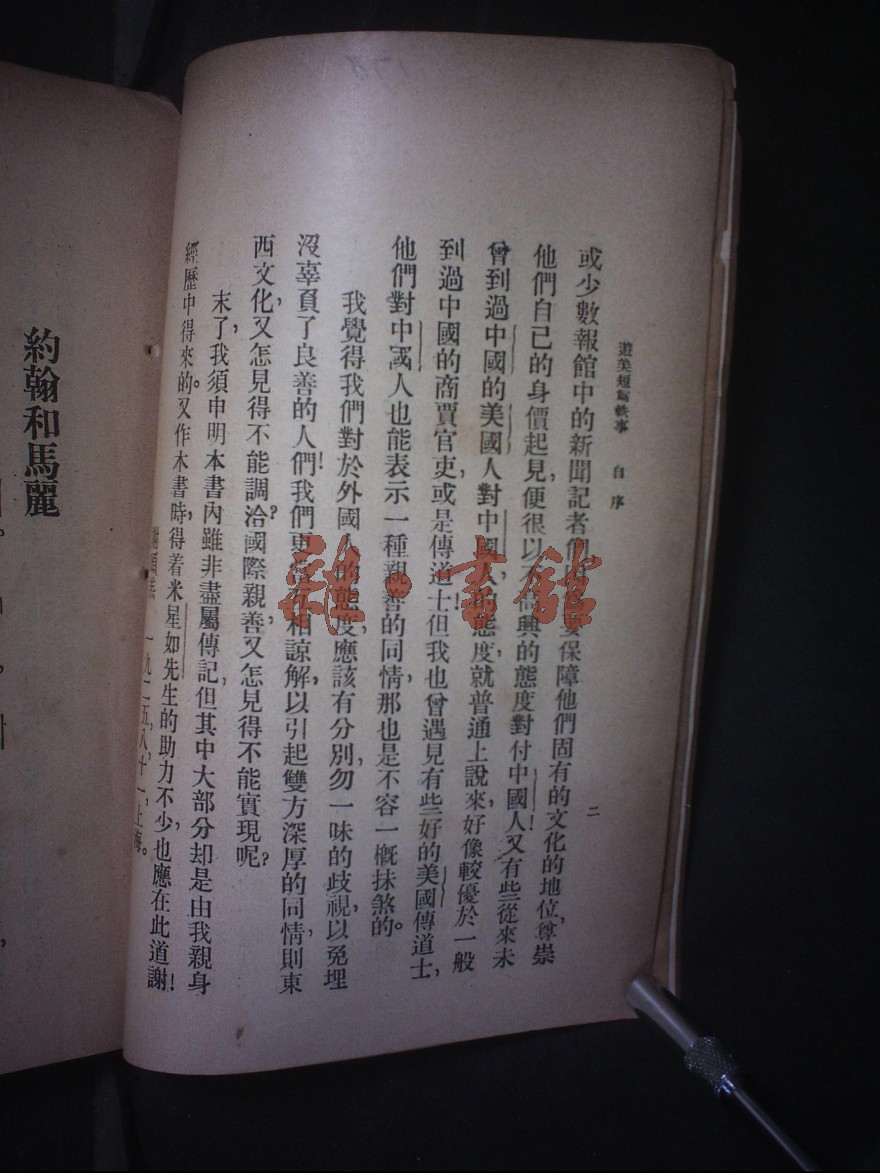 遊美短篇軼事 自序
二
或少數報館中的新聞記者們因為要保障他們固有的文化的地位，尊崇
他們自己的身價起見，便很以不高興的態度對付中國人！又有些從來未
曾到過中國的美國人對中國人的態度，就普通上說來，好像較優於一般
到過中國的商賈官吏，或是傳道士！但我也曾遇見有些好的美國傳道士，
他們對中國人也能表示一種親善的同情，那也是不容一概抹煞的。
我覺得我們對於外國人的態度，應該有分別，勿一味的歧視，以免埋
沒辜負了良善的人們！我們更當互相諒解，以引起雙方深厚的同情，則東
西文化，又怎見得不能調洽？國際親善，又怎見得不能實現呢？
末了，我須申明本書內雖非盡屬傳記，但其中大部分却是由我親身
經歷中得來的。又作木書時，得着米星如先生的助力不少，也應在此道謝！
一九二五，八，十一，上海。
約翰和馬麗
雜·書館